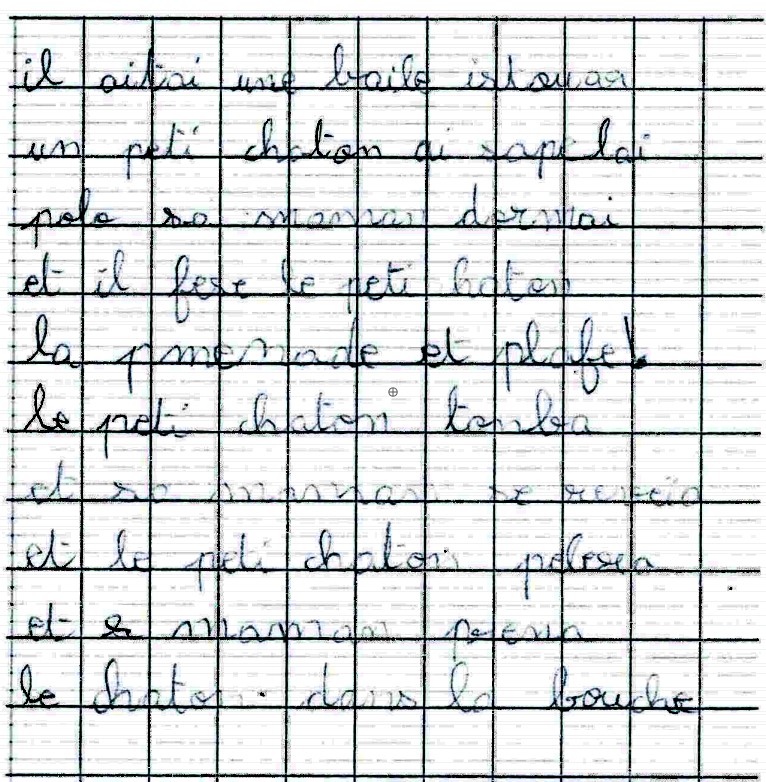 il aitai une baile istouar
un peti chaton ai sapelai
polo sa maman dormai
et il fese le peti haton
la pmenade et plafe!
le peti chaton tomba
et sa maman se reveia
et le peti chaton
et maman prena
le chaton dans la bouche